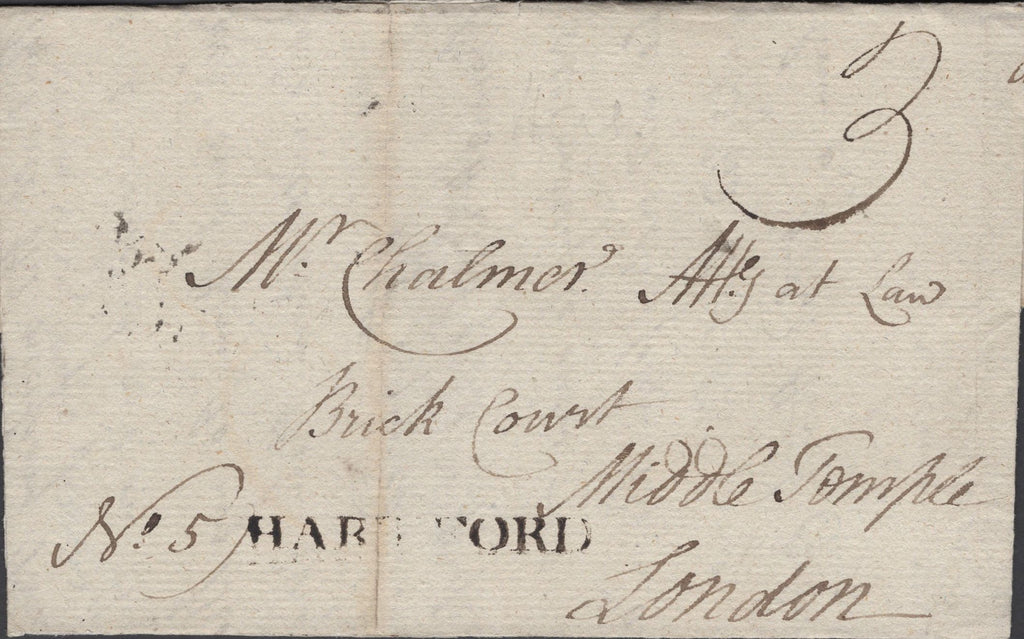 3
Mr. Chalmer Atty at Law
Brick Court
Middle Temple
No 5
London